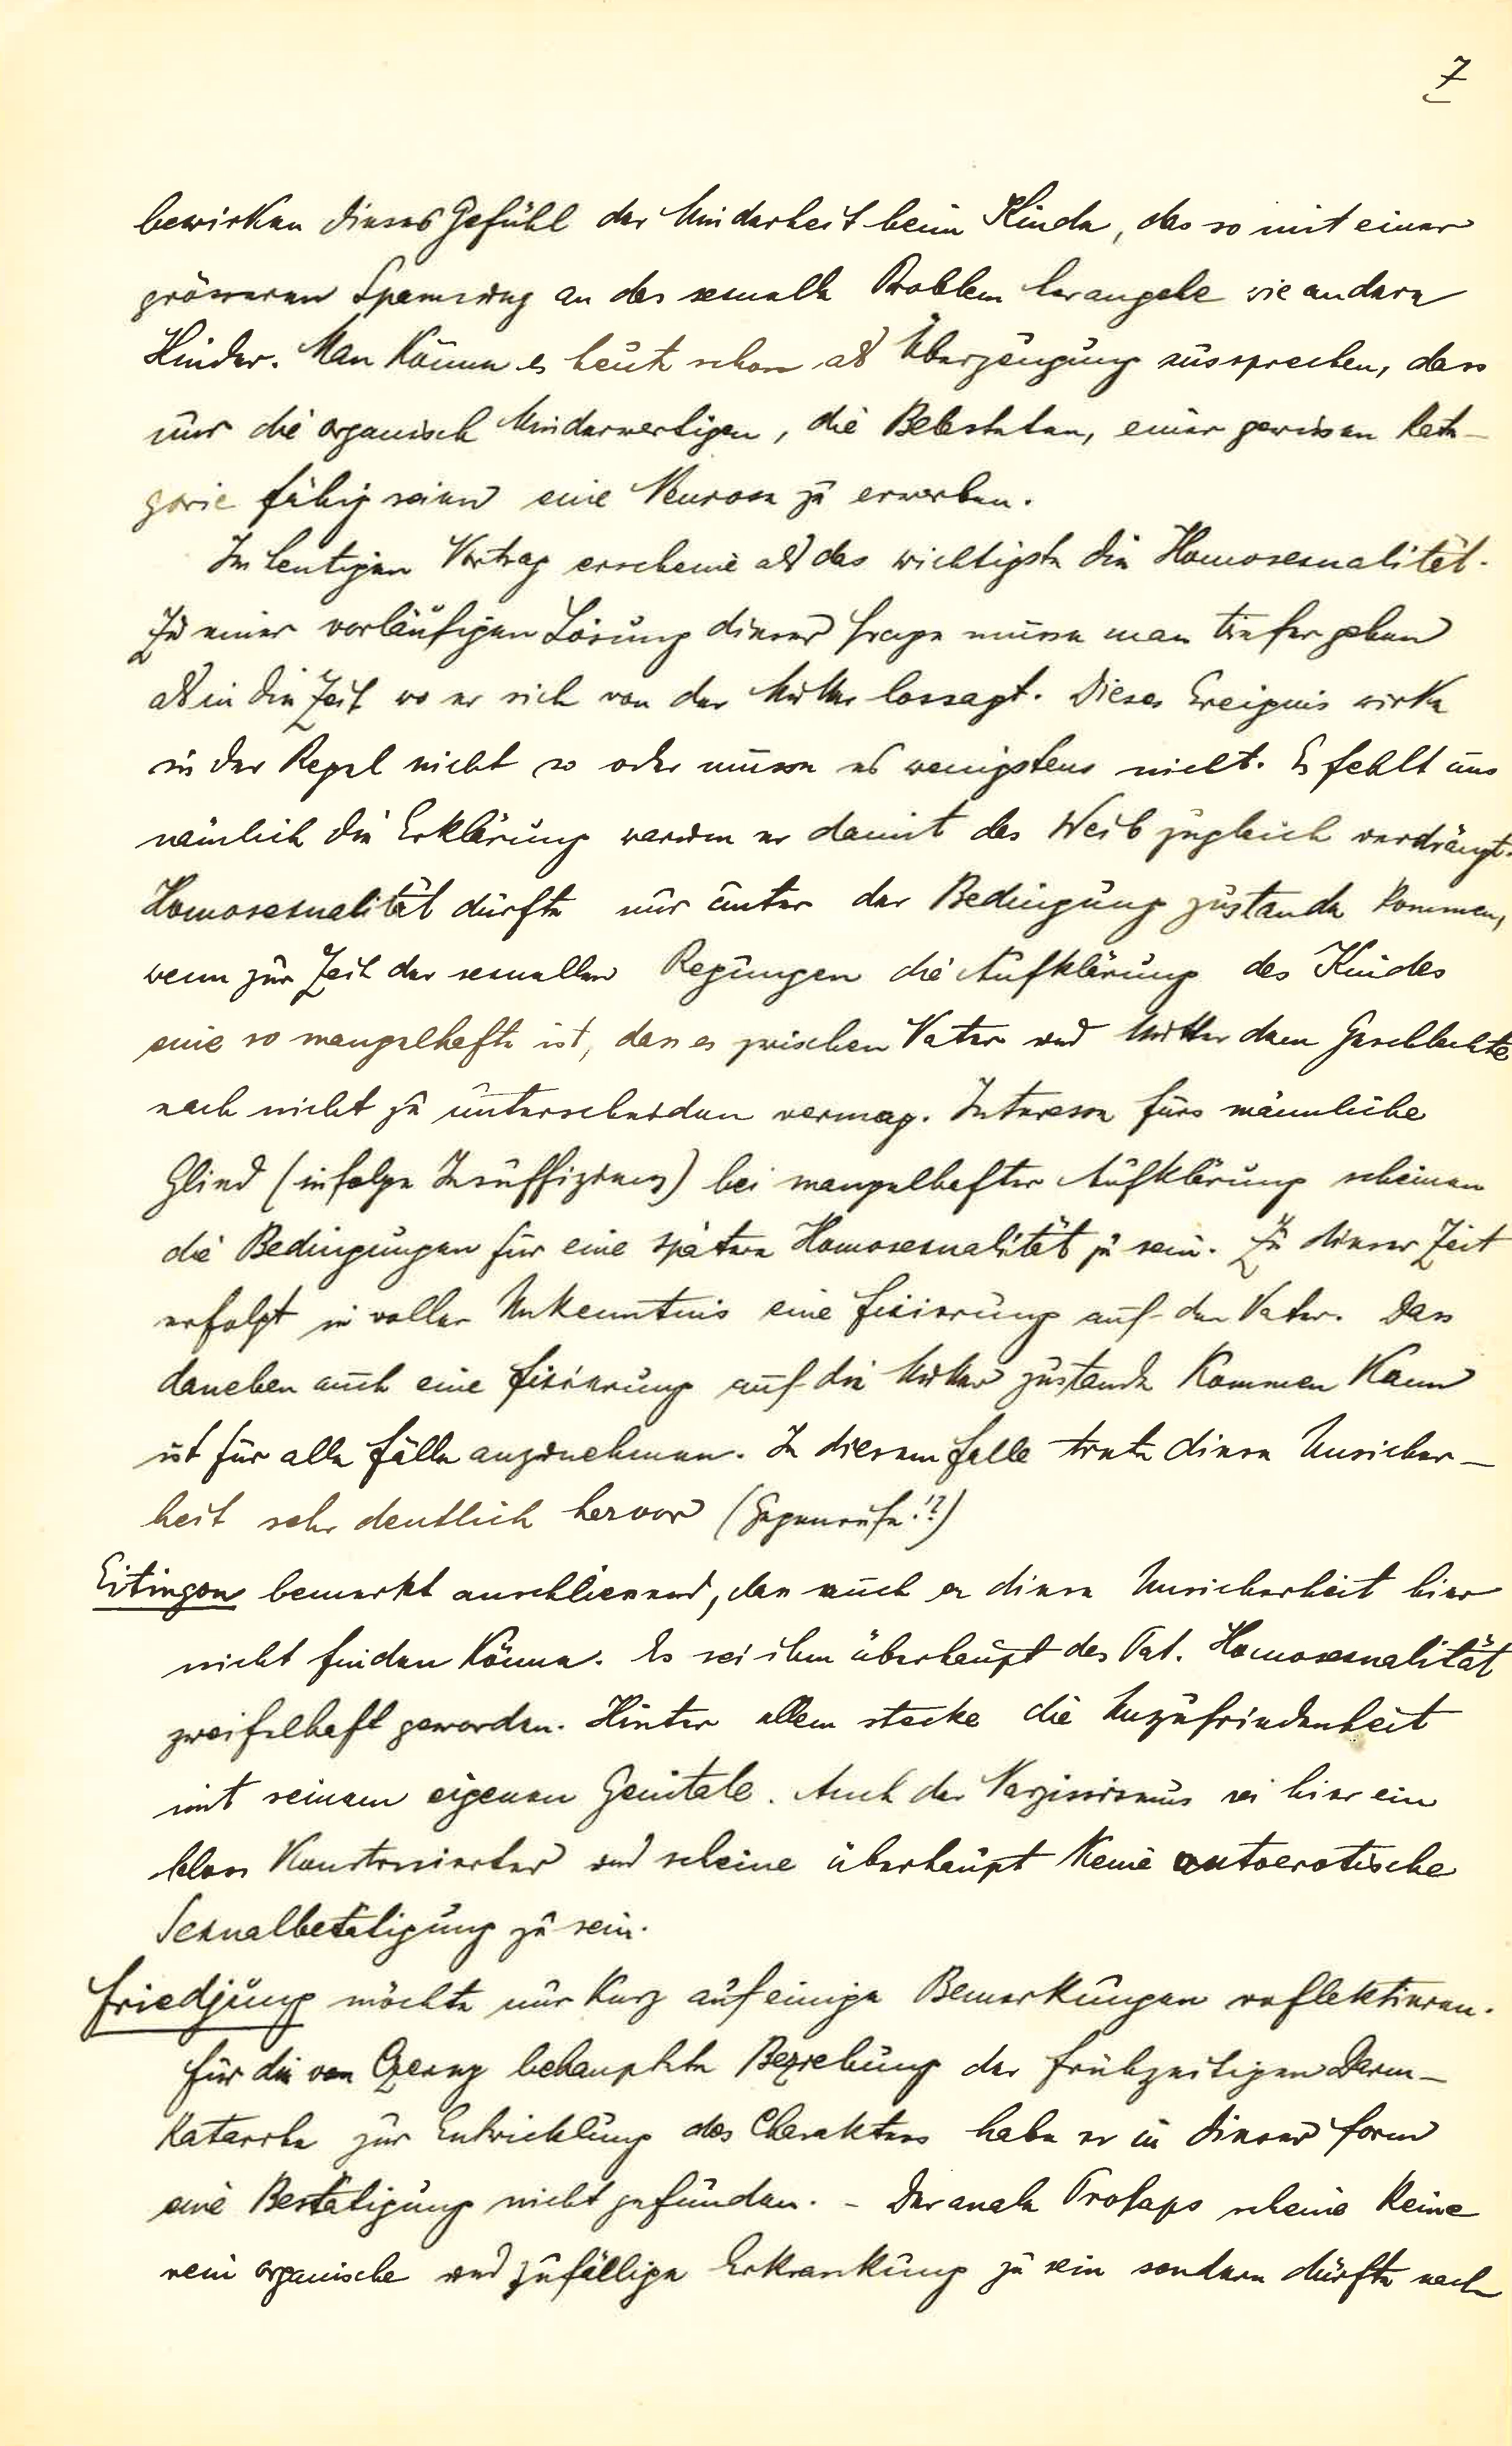 7
bewirken dieses Gefühl der Minderheit beim Kinde, das so mit einer
grösseren Spannung an das sexuelle Problem herangehe wie andere
Kinder. Man könne es heute schon als Überzeugung aussprechen, dass
nur die organisch Minderwertigen, die Belasteten, einer gewissen Kate-
gorie fähig seien eine Neurose zu erwerben.
Im heutigen Vortrag erscheine als das wichtigste die Homosexualität.
Zu einer vorläufigen Lösung dieser Frage müsse man tiefer gehen
als in die Zeit wo er sich von der Mutter lossagt. Dieses Ereignis wirke
in der Regel nicht so oder müsse es wenigstens nicht. Es fehlt uns
nämlich die Erklärung warum er damit das Weib zugleich verdrängt.
Homosexualität dürfte nur unter der Bedingung zustande kommen,
wenn zur Zeit der sexuellen Regungen die Aufklärung des Kindes
eine so mangelhafte ist, dass es zwischen Vater und Mutter dem Geschlechte
nach nicht zu unterscheiden vermag. Interesse fürs männliche
Glied (infolge Insuffizienz) bei mangelhafter Aufklärung scheinen
die Bedingungen für eine spätere Homosexualität zu sein. Zu dieser Zeit
erfolgt in voller Unkenntnis eine Fixierung auf den Vater. Dass
daneben auch eine Fixierung auf die Mutter zustande kommen kann
ist für alle Fälle anzunehmen. In diesem Falle trete diese Unsicher-
heit sehr deutlich hervor (Gegenrufe!?)
Eitingon bemerkt anschliessend, dass auch er diese Unsicherheit hier
nicht finden könne. Es sei ihm überhaupt des Pat. Homosexualität
zweifelhaft geworden. Hinter allem stecke die Unzufriedenheit
mit seinem eigenen Genitale. Auch der Narzissismus sei hier ein
bloss konstruierter und scheine überhaupt keine autoerotische
Sexualbetätigung zu sein.
Friedjung möchte nur kurz auf einige Bemerkungen reflektieren.
Für die von Czerny behauptete Beziehung der frühzeitigen Darm-
katarrhe zur Entwicklung des Charakters habe er in dieser Form
eine Bestätigung nicht gefunden. - Der anale Prolaps scheine keine
rein organische und zufällige Erkrankung zu sein sondern dürfte nach